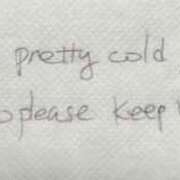 pretty cold
please keep